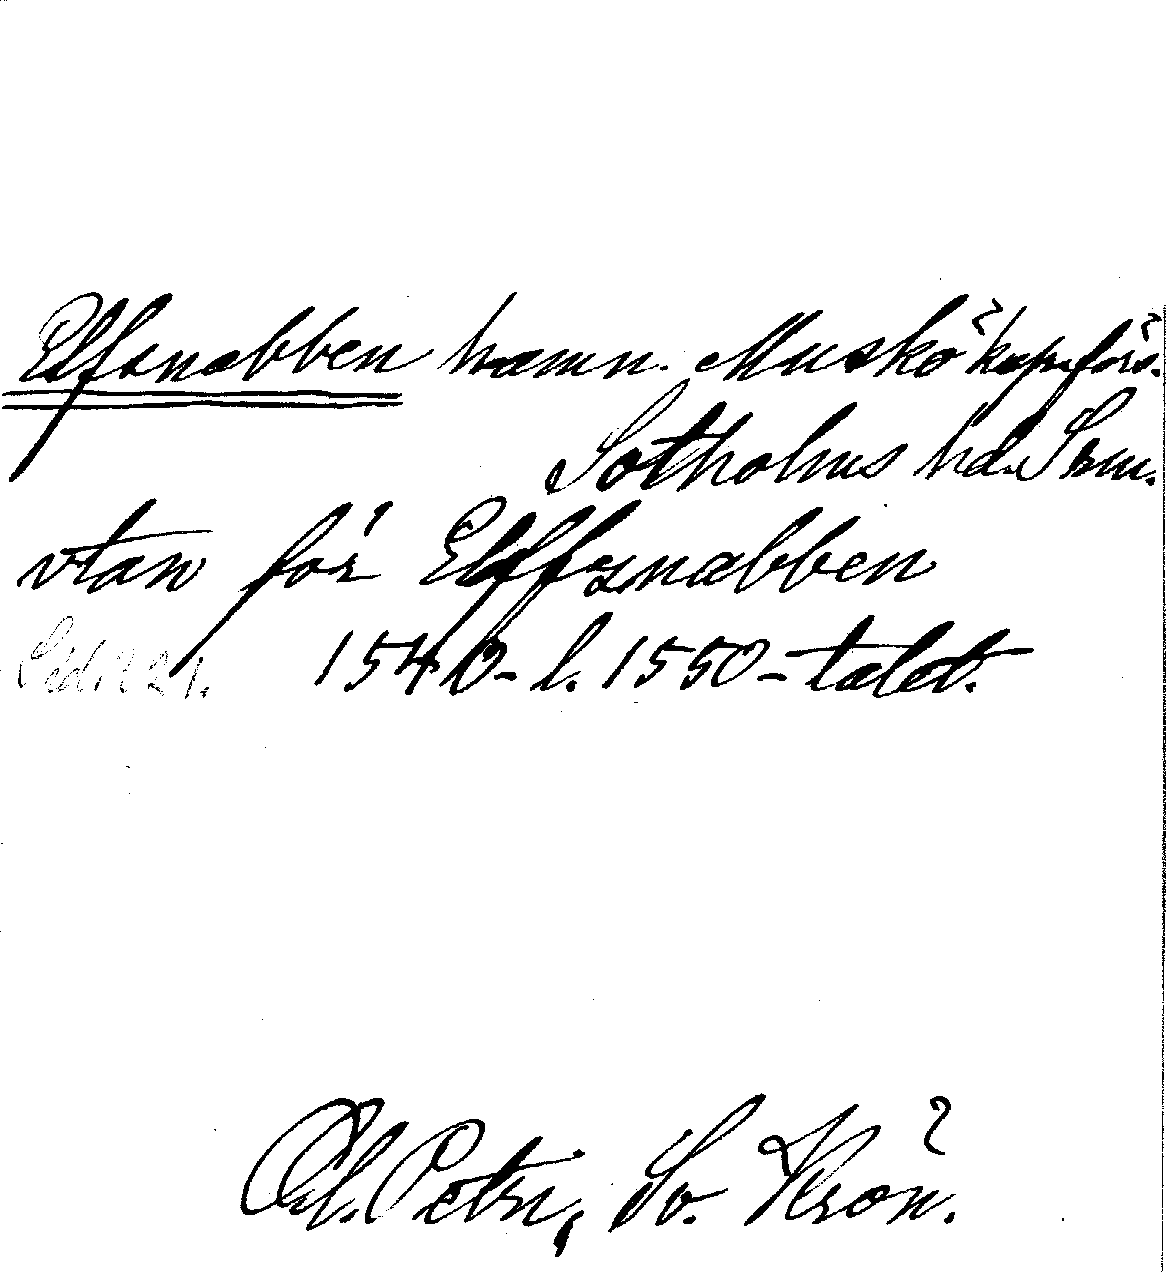 Elfsnabben hamn. Muskö kapelförs.
Sotholms hd. Sdm.
vtan för Elffsnabben
Sid. 221. 1540- l. 1550-talet.
Ol. Petri, Sv. Krön.